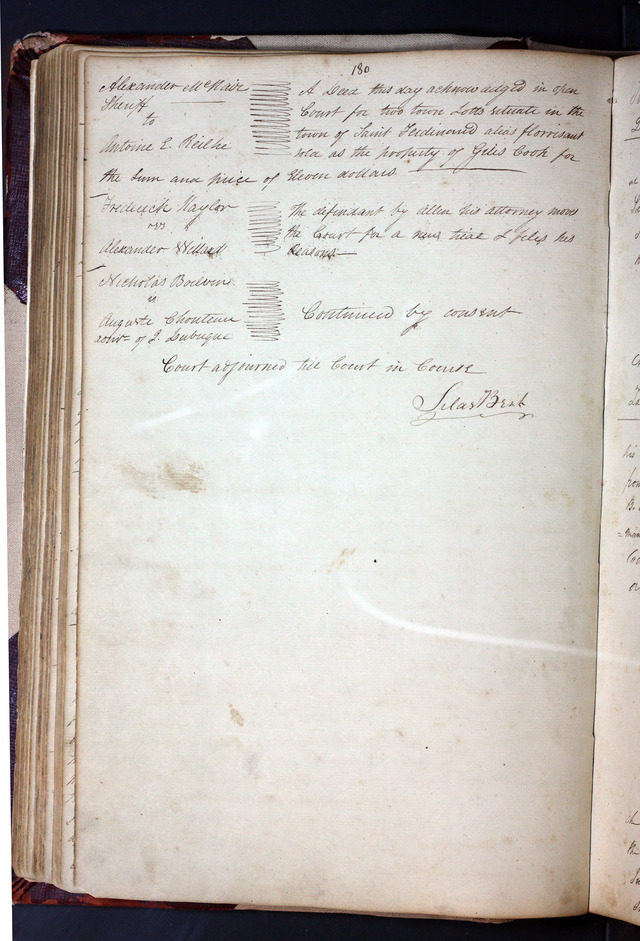 180
Alexander McNair
Sheriff
to
Antoine E. Reilhe
A Deed this day acknowledged in open
Court for two town Lotts situate in the
town of Saint Ferdinand alias florrisant
sold as the property of Giles Cook for
the Sum and price of Eleven dollars
Frederick Naylor
vs
Alexander Willard
the defendant by Allen his attorney moves
the Court for a new trial & files his
Reasons
Nicholas Boilvin
vs
Auguste Chouteau
admr. of J. Dubuque
Continued by consent
Court adjourned till Court in Course
Silas Bent